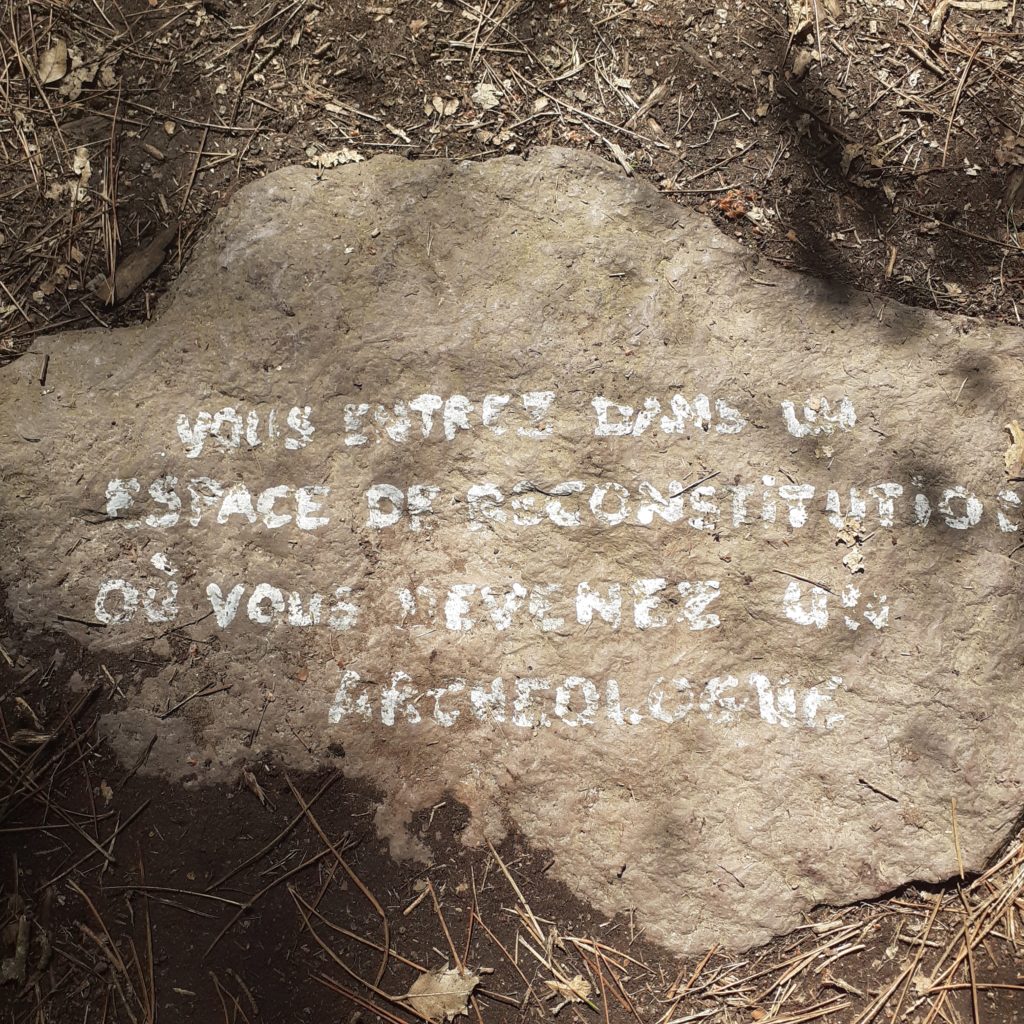 VOUS ENTREZ DANS UN
ESPACE DE RECONSTITUTION
OÙ VOUS DEVENEZ UN
ARCHEOLOGUE